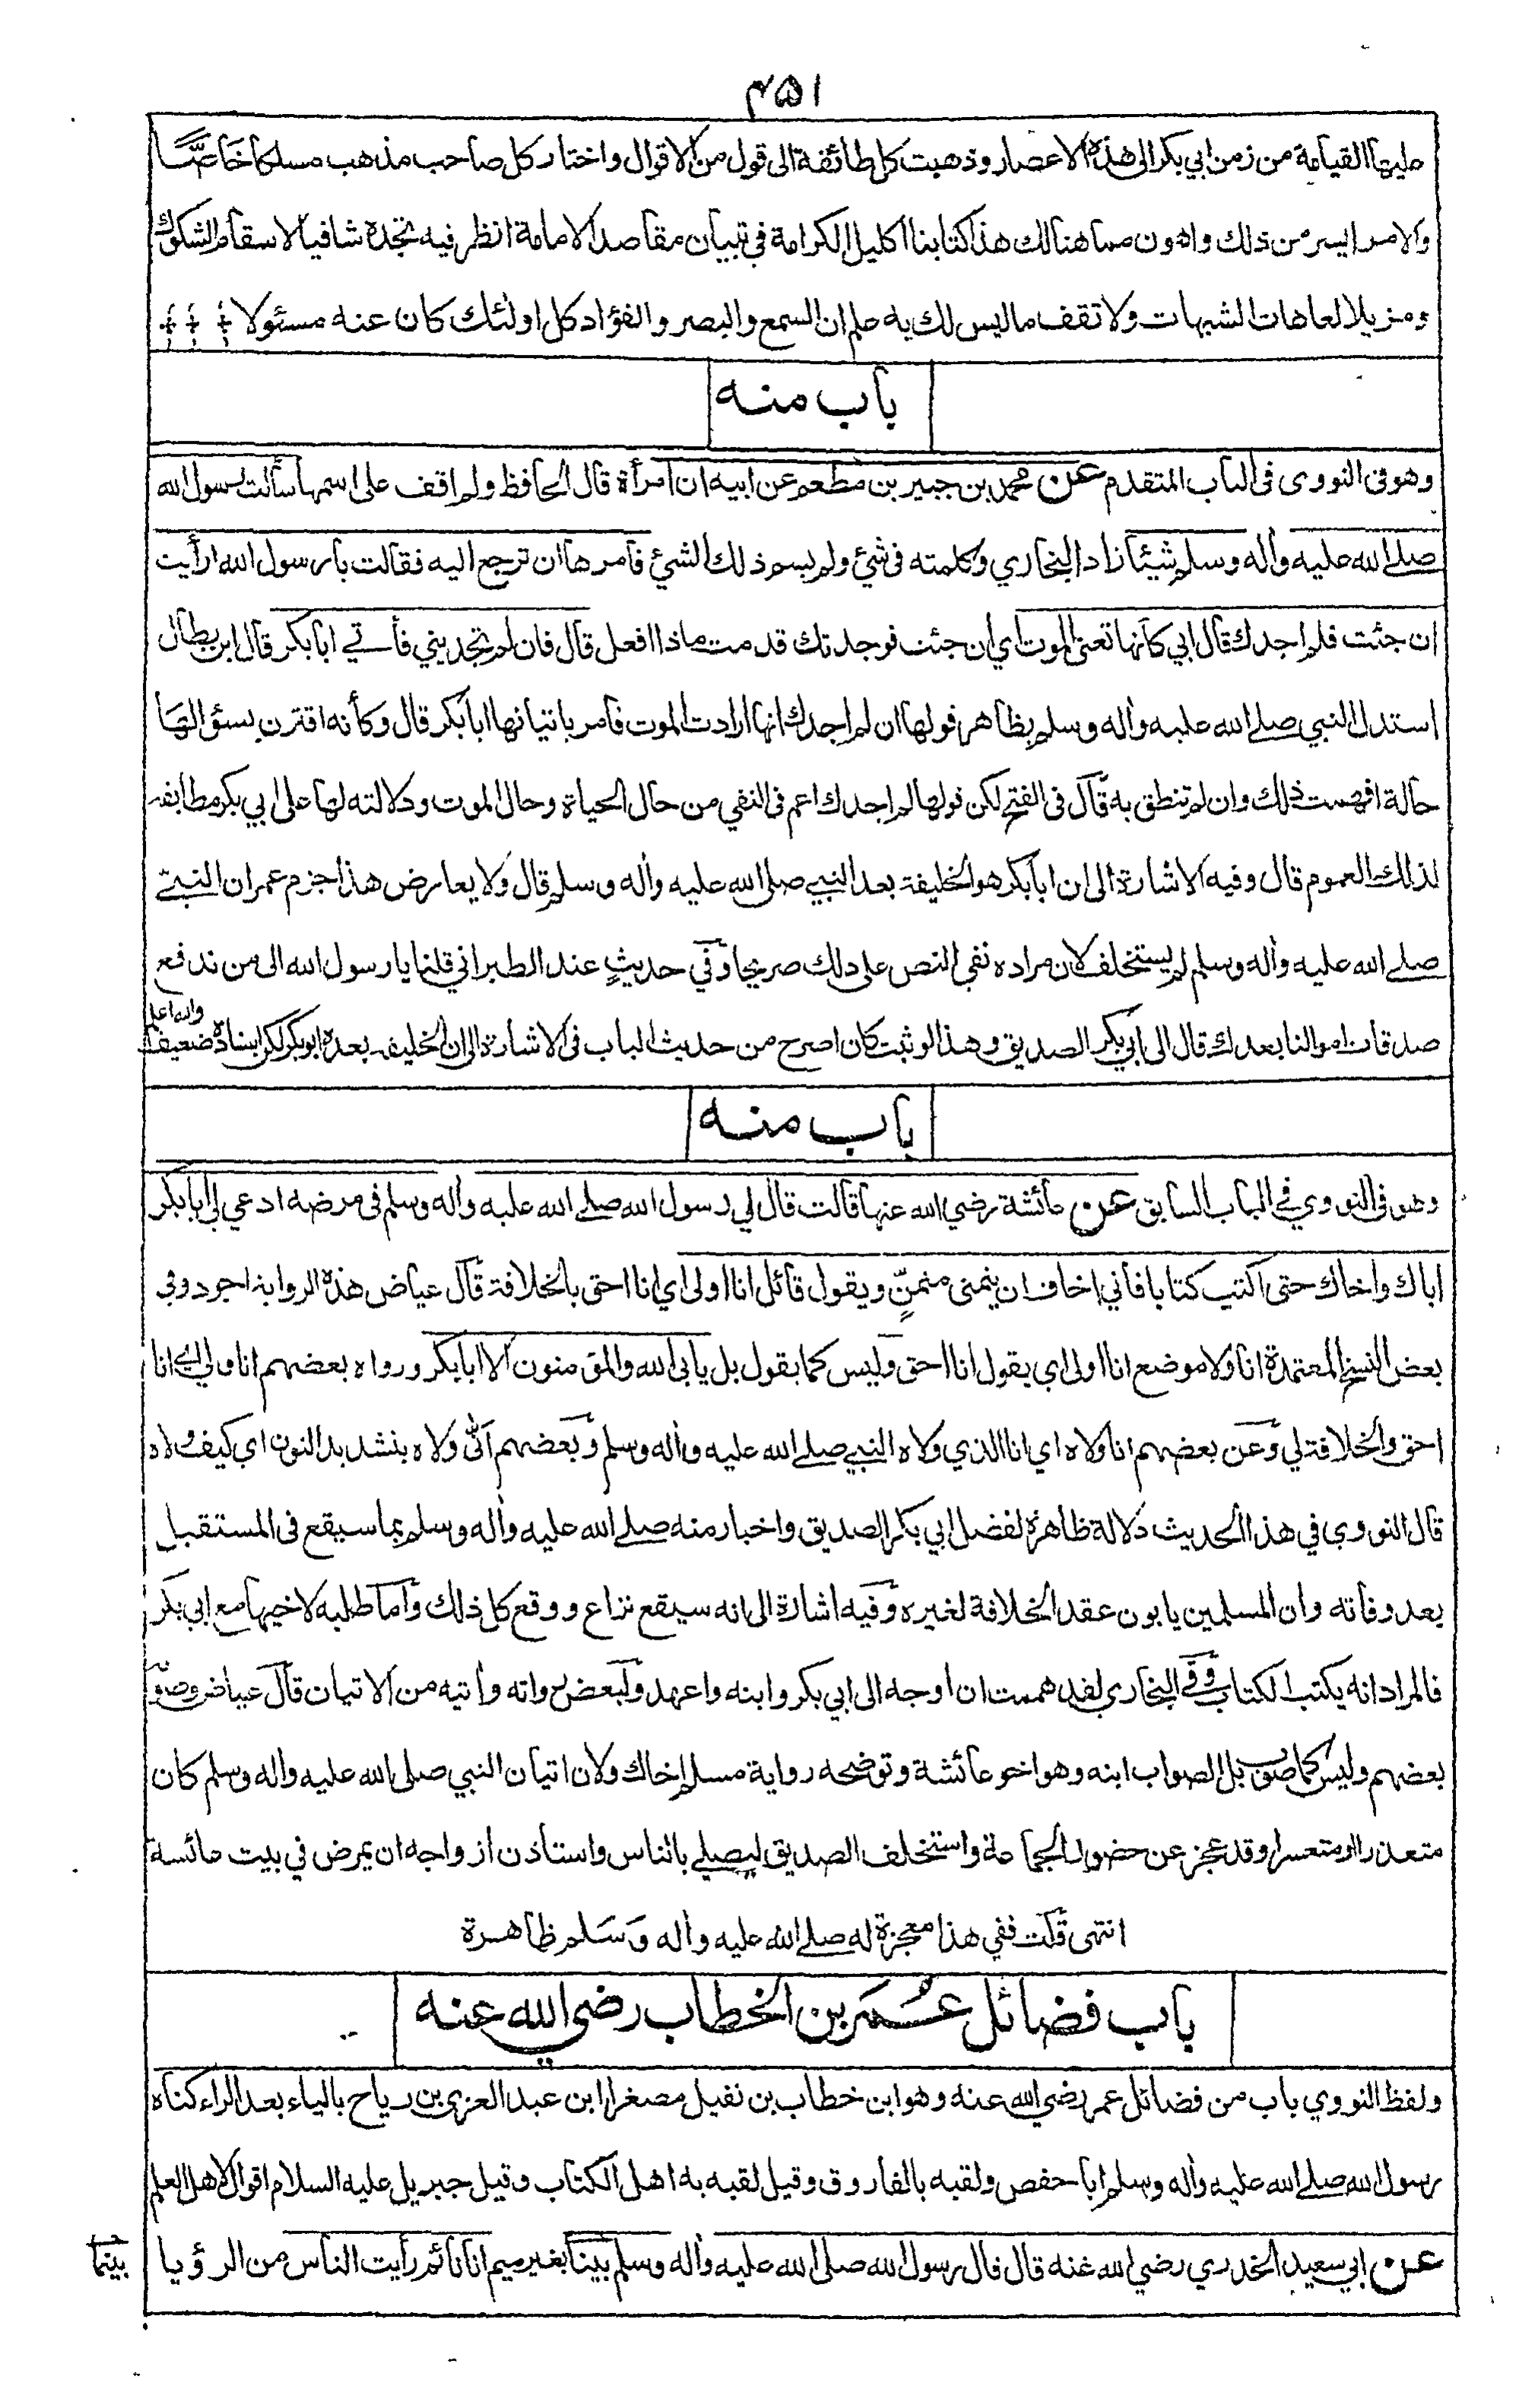 ۴۵۱
عليها القيامة من زمن ابي بكر الى هذه الاعصار وذهبت كل طائفة الى قول من الاقوال واختار كل صاحب مذهب مسلكا خاصًّا
والامر ايسر من ذلك واهون مما هنالك هذا كتابنا اكليل الكرامة في تبيان مقاصد الامامة انظر فيه تجده شافيا لاسقام الشكوك
ومزيلا لعاهات الشبهات ولا تقف ما ليس لك به علم ان السمع والبصر والفؤاد كل اولئك كان عنه مسئولا
باب منه
وهو في النووى فى الباب المتقدم عن محمد بن جبير بن مطعم عن ابيه ان امرأة قال الحافظ ولم اقف على اسمها سألت رسول الله
صلے الله عليه وأله وسلم شيئا زاد البخاري وكلمته فى شئ ولم يسم ذلك الشئ فأمرها ان ترجع اليه فقالت يا رسول الله ارأيت
ان جئت فلم اجدك قال ابي كأنها تعنى الموت اي ان جئت فوجدتك قد مت ماذا افعل قال فان لم تجديني فأتے ابا بكر قال ابن بطال
استدل النبي صلے الله عليه وأله وسلم بظاهر قولها ان لم اجدك انها ارادت الموت فأمر باتيانها ابا بكر قال وكأنه اقترن بسؤالها
حالة افهمت ذلك وان لم تنطق به قال فى الفتح لكن قولها لم اجدك اعم فى النفي من حال الحياة وحال الموت ودلالته لها على ابي بكر مطابقة
لذلك العموم قال وفيه الاشارة الى ان ابا بكر هو الخليفة بعد النبي صلى الله عليه وأله وسلم قال ولا يعارض هذا جزم عمر ان النبے
صلے الله عليه وأله وسلم لم يستخلف لان مراده نفي النص على ذلك صريحا وفي حديثٍ عند الطبراني قلنا يا رسول الله الى من ندفع
صدقات اموالنا بعدك قال الى ابي بكر الصديق وهذا لو ثبت كان اصرح من حديث الباب فى الاشارة الى ان الخليفة بعده ابو بكر لكن اسناده ضعيف والله اعلم
باب منه
وهو فى النووي في الباب السابق عن عائشة رضي الله عنها قالت قال لي رسول الله صلے الله عليه وأله وسلم فى مرضه ادعي لي ابا بكر
اباك واخاك حتى اكتب كتابا فاني اخاف ان يتمنى متمنٍّ ويقول قائل انا اولى اي انا احق بالخلافة قال عياض هذه الرواية اجود وفي
بعض النسخ المعتمدة انا ولا موضع انا اولى اي يقول انا احق وليس كما يقول بل يأبى الله والمؤمنون الا ابا بكر ورواه بعضهم انا ولي اي انا
احق والخلافة لي وعن بعضهم انا ولاه اي انا الذي ولاه النبي صلے الله عليه وأله وسلم وبعضهم اَنّى ولاه بتشديد النون اي كيف ولاه
قال النووي في هذا الحديث دلالة ظاهرة لفضل ابي بكر الصديق واخبار منه صلے الله عليه وأله وسلم بما سيقع فى المستقبل
بعد وفاته وان المسلمين يابون عقد الخلافة لغيره وفيه اشارة الى انه سيقع نزاع ووقع كل ذلك وأما طلبه لاخيها مع ابي بكر
فالمراد انه يكتب الكتاب وفي البخاري لقد هممت ان اوجه الى ابي بكر وابنه واعهد ولبعض رواته وأتيه من الاتيان قال عياض وصوّبه
بعضهم وليس كما صوّب بل الصواب ابنه وهو اخو عائشة وتوضحه رواية مسلم اخاك ولان اتيان النبي صلى الله عليه وأله وسلم كان
متعذرا او متعسرا وقد عجز عن حضور الجماعة واستخلف الصديق ليصلے بالناس واستأذن ازواجه ان يمرض في بيت عائشة
انتهى قلت ففي هذا معجزة له صلے الله عليه وأله وَسَلم ظاهرة
باب فضائل عُمَر بن الخطاب رضي الله عنه
ولفظ النووي باب من فضائل عمر رضي الله عنه وهو ابن خطاب بن نفيل مصغرا ابن عبد العزى بن رياح بالياء بعد الراء كناه
رسول الله صلے الله عليه وأله وسلم ابا حفص ولقبه بالفاروق وقيل لقبه به اهل الكتاب وقيل جبريل عليه السلام اقوال لاهل العلم
عن ابي سعيد الخدري رضي الله عنه قال قال رسول الله صلى الله عليه وأله وسلم بينا بغير ميم انا نائم رأيت الناس من الرؤيا
بينما